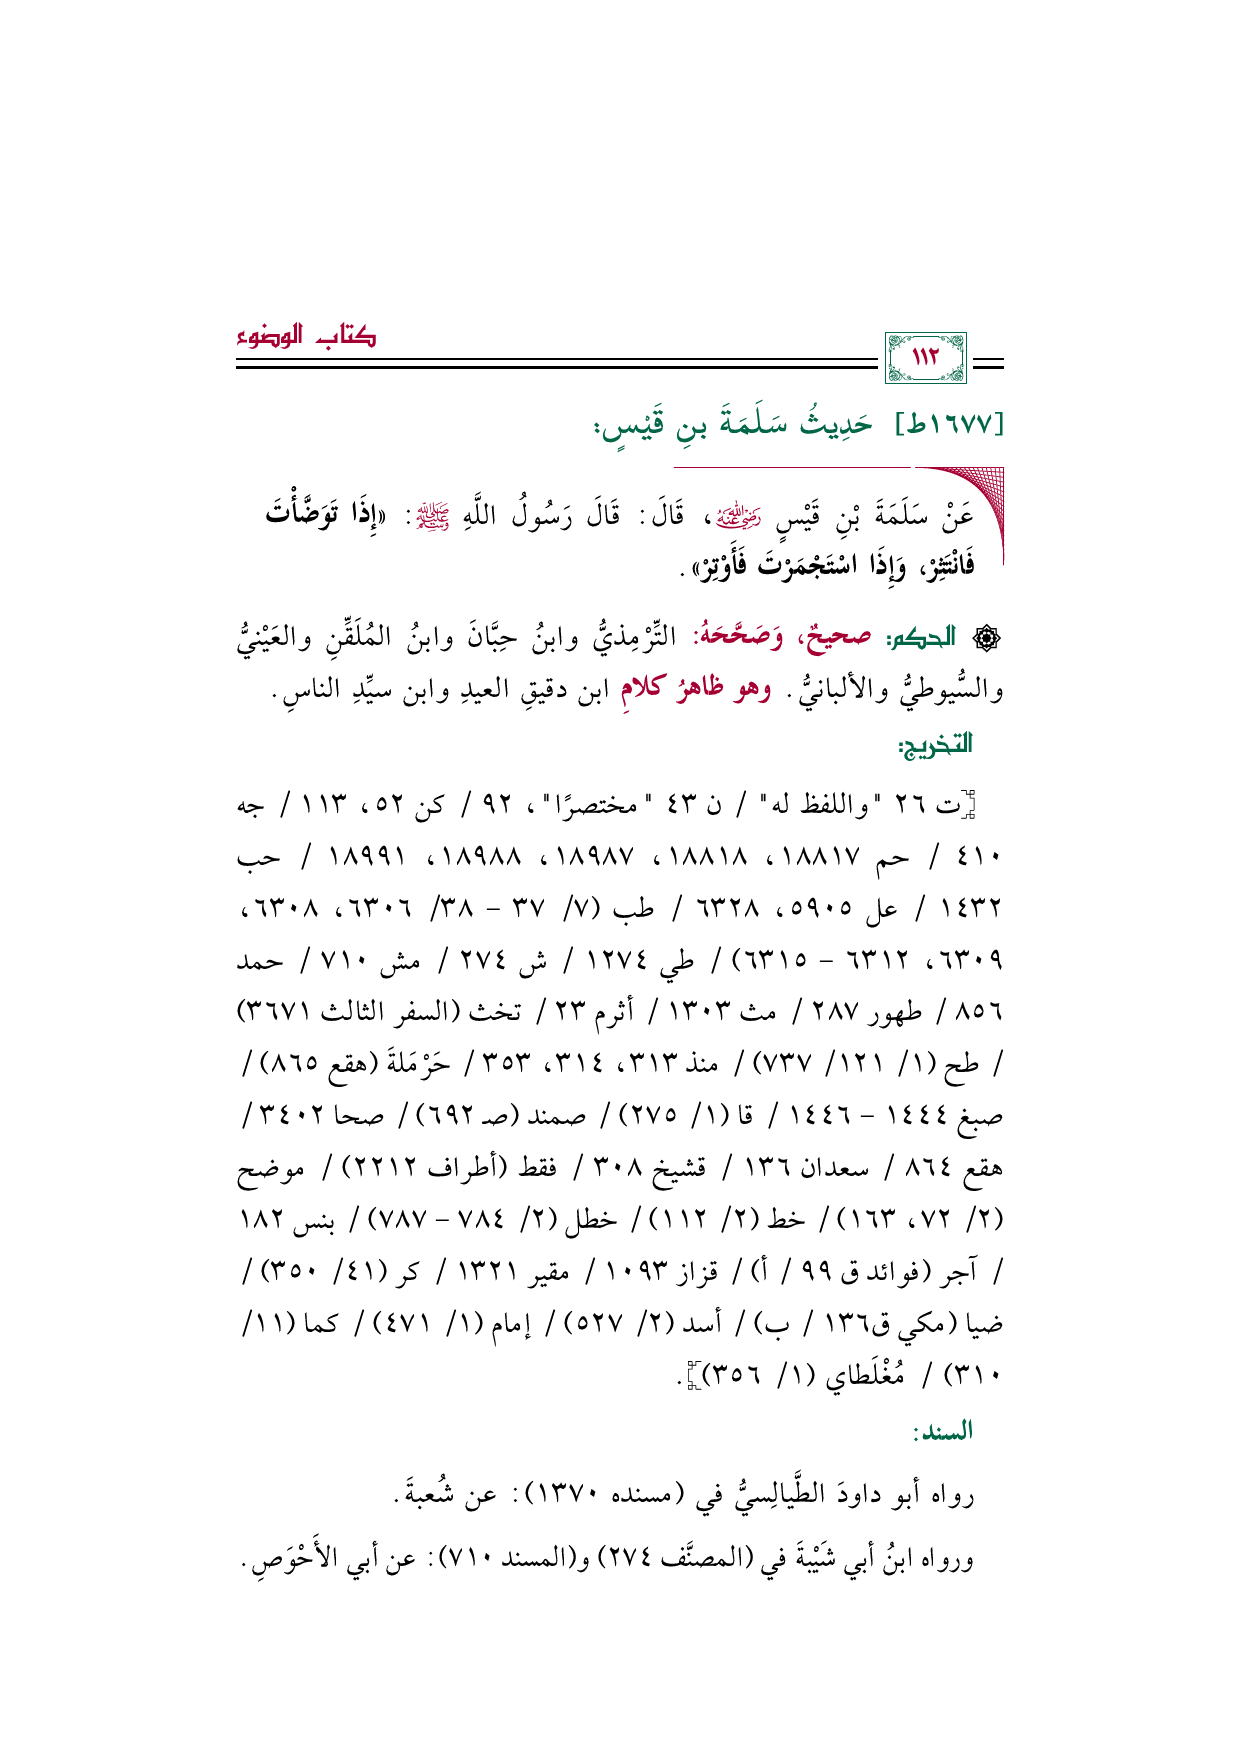 كتاب الوضوء
١١٢
[١٦٧٧ط] حَدِيثُ سَلَمَةَ بنِ قَيْسٍ:
عَنْ سَلَمَةَ بْنِ قَيْسٍ رضي الله عنه، قَالَ: قَالَ رَسُولُ اللَّهِ ﷺ: «إِذَا تَوَضَّأْتَ
فَانْتَثِرْ، وَإِذَا اسْتَجْمَرْتَ فَأَوْتِرْ».
الحكم: صحيحٌ، وَصَحَّحَهُ: التِّرْمِذيُّ وابنُ حِبَّانَ وابنُ المُلَقِّنِ والعَيْنيُّ
والسُّيوطيُّ والألبانيُّ. وهو ظاهرُ كلامِ ابن دقيقِ العيدِ وابن سيِّدِ الناسِ.
التخريج:
[ت ٢٦ "واللفظ له" / ن ٤٣ "مختصرًا"، ٩٢ / كن ٥٢، ١١٣ / جه
٤١٠ / حم ١٨٨١٧، ١٨٨١٨، ١٨٩٨٧، ١٨٩٨٨، ١٨٩٩١ / حب
١٤٣٢ / عل ٥٩٠٥، ٦٣٢٨ / طب (٧/ ٣٧ – ٣٨/ ٦٣٠٦، ٦٣٠٨،
٦٣٠٩، ٦٣١٢ – ٦٣١٥) / طي ١٢٧٤ / ش ٢٧٤ / مش ٧١٠ / حمد
٨٥٦ / طهور ٢٨٧ / مث ١٣٠٣ / أثرم ٢٣ / تخث (السفر الثالث ٣٦٧١)
/ طح (١/ ١٢١/ ٧٣٧) / منذ ٣١٣، ٣١٤، ٣٥٣ / حَرْمَلةَ (هقع ٨٦٥) /
صبغ ١٤٤٤ – ١٤٤٦ / قا (١/ ٢٧٥) / صمند (صـ ٦٩٢) / صحا ٣٤٠٢ /
هقع ٨٦٤ / سعدان ١٣٦ / قشيخ ٣٠٨ / فقط (أطراف ٢٢١٢) / موضح
(٢/ ٧٢، ١٦٣) / خط (٢/ ١١٢) / خطل (٢/ ٧٨٤ – ٧٨٧) / بنس ١٨٢
/ آجر (فوائد ق ٩٩ / أ) / قزاز ١٠٩٣ / مقير ١٣٢١ / كر (٤١/ ٣٥٠) /
ضيا (مكي ق١٣٦ / ب) / أسد (٢/ ٥٢٧) / إمام (١/ ٤٧١) / كما (١١/
٣١٠) / مُغْلَطاي (١/ ٣٥٦)].
السند:
رواه أبو داودَ الطَّيالِسيُّ في (مسنده ١٣٧٠): عن شُعبةَ.
ورواه ابنُ أبي شَيْبةَ في (المصنَّف ٢٧٤) و(المسند ٧١٠): عن أبي الأَحْوَصِ.